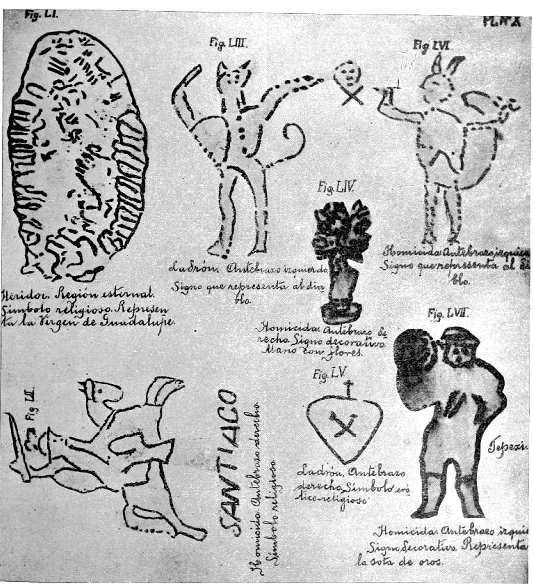 Fig. LI.
Heridor. Región esternal.
Símbolo religioso. Represen-
ta la Virgen de Guadalupe.
Fig. LIII.
Ladrón. Antebrazo izquierdo
Signo que representa al dia
blo.
Fig. LVI
Homicida: Antebrazo izquier
Signo que representa al
blo.
Fig. LIV.
Homicida: Antebrazo de
recho. Signo decorativo.
Mano con flores.
Fig. LII.
SANTIACO
Homicida: Antebrazo derecho.
Símbolo religioso
Fig. LV.
Ladrón. Antebrazo
derecho. Símbolo eró
tico-religioso
Fig. LVII.
Tepexi
Homicida: Antebrazo izquie
Signo decorativo. Representa
la sota de oros.